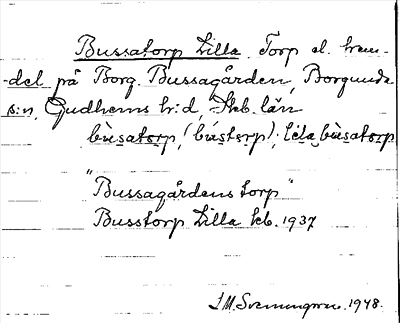 Bussatorp Lilla. Torp el. hem-
del på Borg. Bussagården, Borgunda
s:n, Gudhems h:d, Skb. län
bùsatɔrp, (bustɔrp); lìla bùsatɔrp
"Bussagårdens torp"
Busstorp Lilla kb. 1937
J.M. 1948.